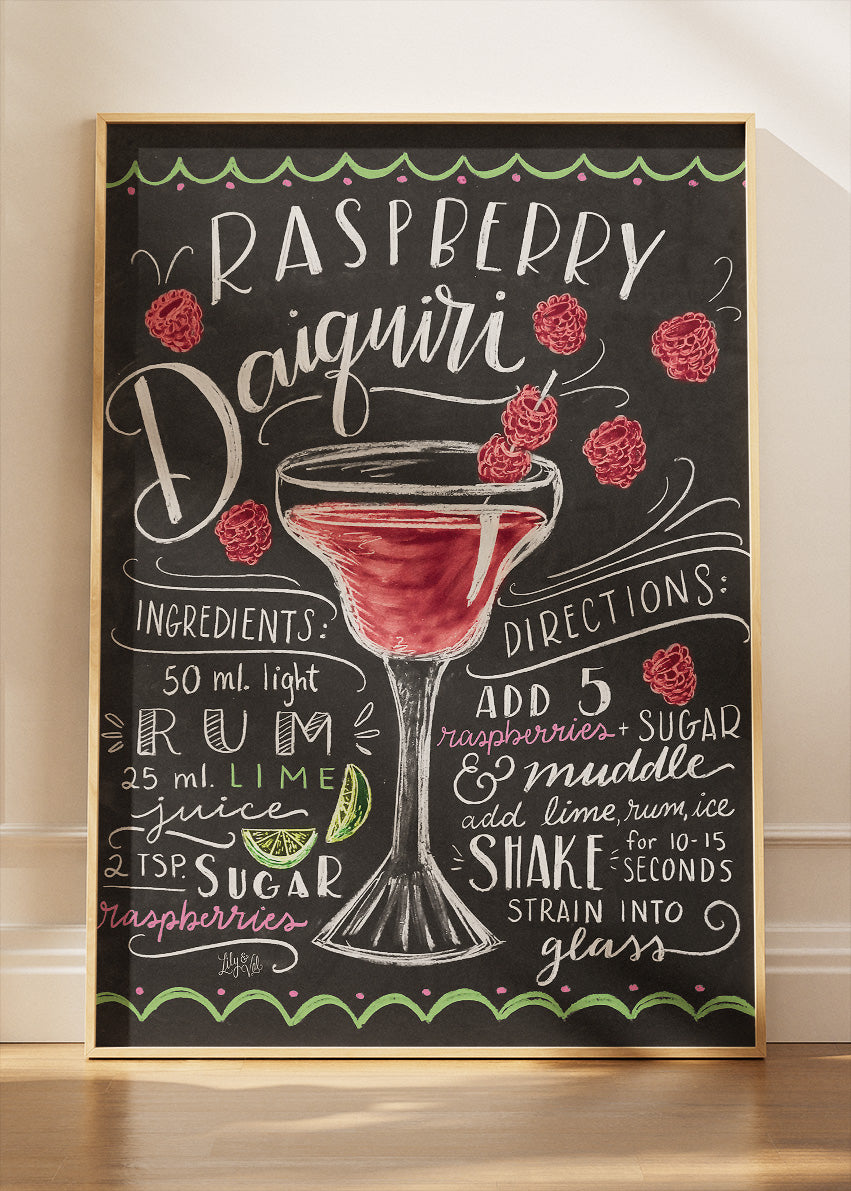 RASPBERRY
Daiquiri
INGREDIENTS:
50 ml. light
RUM
25 ml. LIME
juice
2 TSP. SUGAR
raspberries
Lily & Val
DIRECTIONS:
ADD 5
raspberries + SUGAR
& muddle
add lime, rum, ice
SHAKE for 10-15
SECONDS
STRAIN INTO
glass